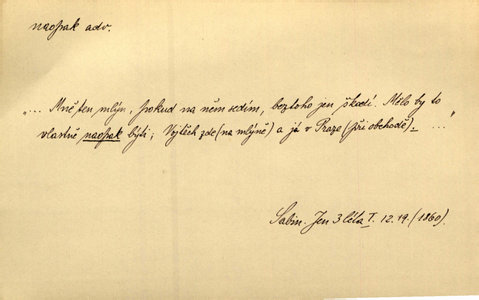 naopak adv.
"... Mně ten mlýn, pokud na něm sedím, beztoho jen škodí. Mělo by to
vlastně naopak býti; Vojtěch zde (na mlýně) a já v Praze (při obchodě). – ..."
Sabin. Jen 3 léta I. 12.19. (1860).